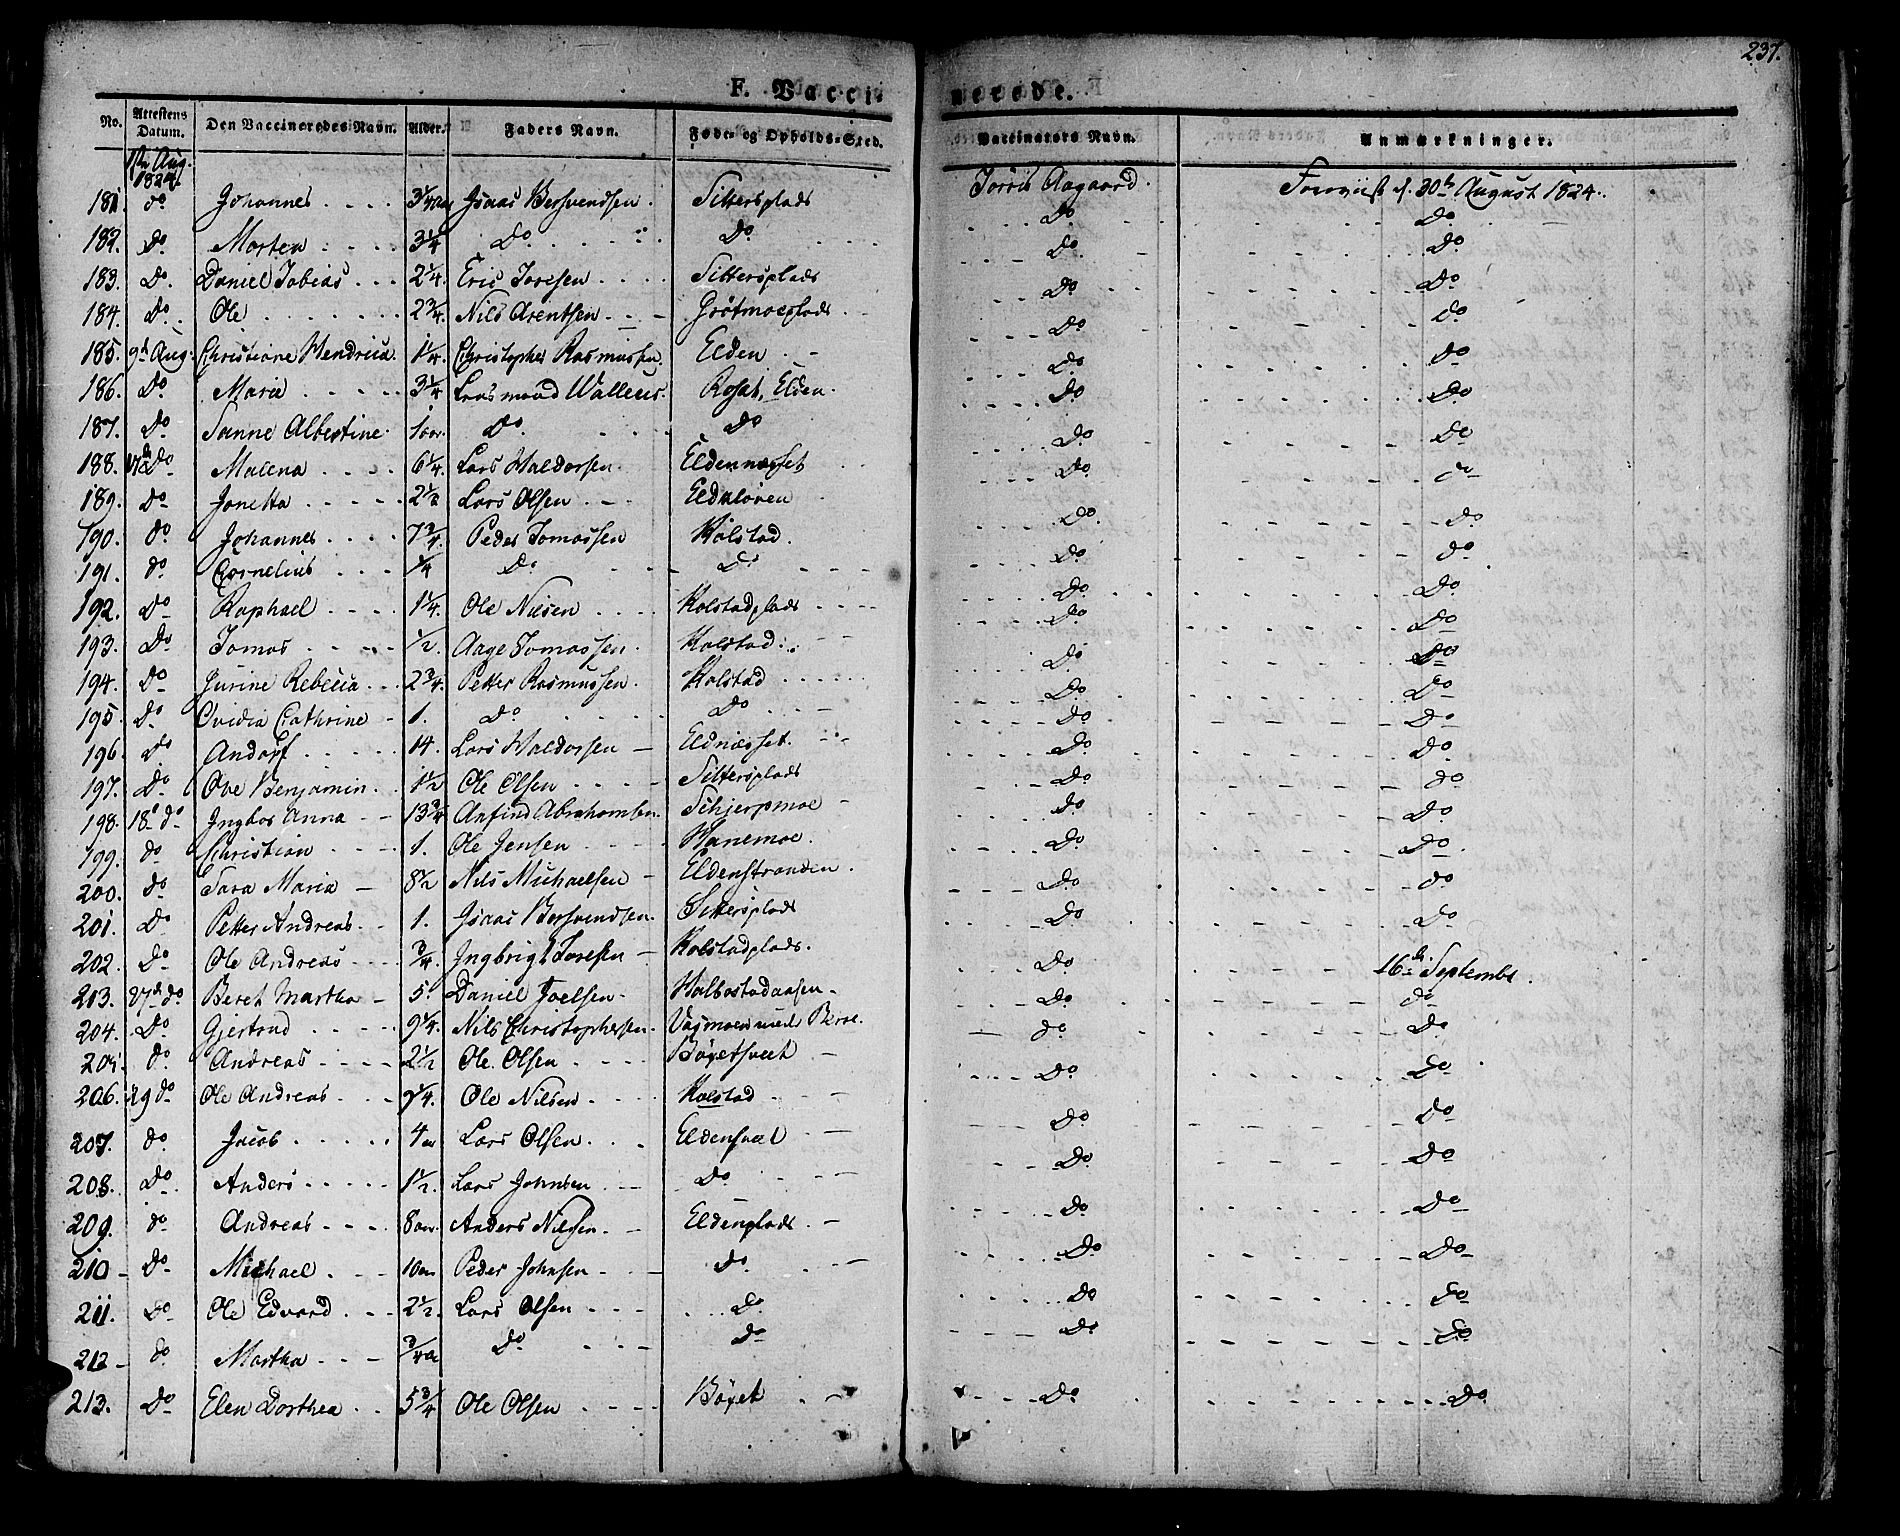 237.
F. Vacci- nerede.
No. Attestens Datum. Den Vaccineredes Navn. Alder. Faders Navn. Føde- og Opholds-Sted. Vaccinators Navn. Anmærkninger.
Aug. 1824.
181. do Johannes 3 1/4 aar Isaac Bersvendsen. Sittersplads Jørris Aagaard. 30te August 1824.
182. Do Morten 3 1/4 Do Do Do Do
183. Do. Daniel Tobias 2 1/4. Eric Joresen Sittersplads Do Do
184. Do. Ole 2 3/4. Nils Arentsen Grøtmoeplads Do Do
185. 9d Aug. Christiane Hendrica. 1 1/4. Christopher Rasmussen. Elden Do do
186. Do. Maria 3 1/4 Roset, Elden. Do do
187. Do Sanne Albertine. 1 aar. Do Do Do Do
188. 17de Do Malena 6 1/4. Lars Haldorsen. Eldennæsset Do Do
189. Do Jonetta 2 1/2 Lars Olsen Eldnløren Do do
190. do Johannes 7 3/4. Peder Tomassen Holstad. Do do
191. do. Cornelius 1/4 Do Do Do do
192. Do Raphael 1 1/4. Ole Nilsen Holstadplads Do Do
193. Do Tomas 1/2. Aage Tomassen. Holstad Do Do
194. Do Jurine Rebecca 2 3/4. Petter Rasmussen. Holstad Do Do
195. Do Ovidia Cathrine 1. Do Do Do Do
196. Do Andorf 14. Lars Haldorsen Eldnæsset. Do Do
197. Do. Ove Benjamin 1 1/2 Ole Olsen Sittersplads Do Do
198. 18d do Ingbor Anna 13 3/4 Anfind Abrahamsen. Schjerpmoe Do do
199. do Christian 1. Ole Jensen Hanemoe. Do Do
200. do Sara Maria 8 1/2 Nils Michaelsen Eldenstranden. Do Do
201. Do Petter Andreas 1. Isaac Bersvendsen. Sittersplads Do do
202. Do Ole Andreas 3/4. Ingbrigt Joresen Holstadplads. Do Do
213. 27de do Beret Martha 5. Daniel Joelsen. Holbostadaasen Do 16de Septembr.
204. Do Gjertrud 9 1/4. Nils Christophersen. Do do
205. do. Andreas 2 1/2 Ole Olsen Bøgetsvæt do Do
206. 29 do Ole Andreas 7 1/4. Ole Nilsen Holstad Do Do
207. do Jacob 4 aar Lars Olsen Eldensvæt Do Do
208. Do Anders 1 1/2. Lars Johnsen Do Do Do
209. do Andreas 8 aar. Anders Nilsen Eldenplads Do Do
210 Do Michael 10 aar Peder Johnsen Do. Do Do
211. Do Ole Edvard 2 1/2. Lars Olsen Do Do Do
212 do Martha 3/4 aar Do Do Do Do
213. Do Elen Dorthea 5 3/4 Ole Olsen Bøget Do Do